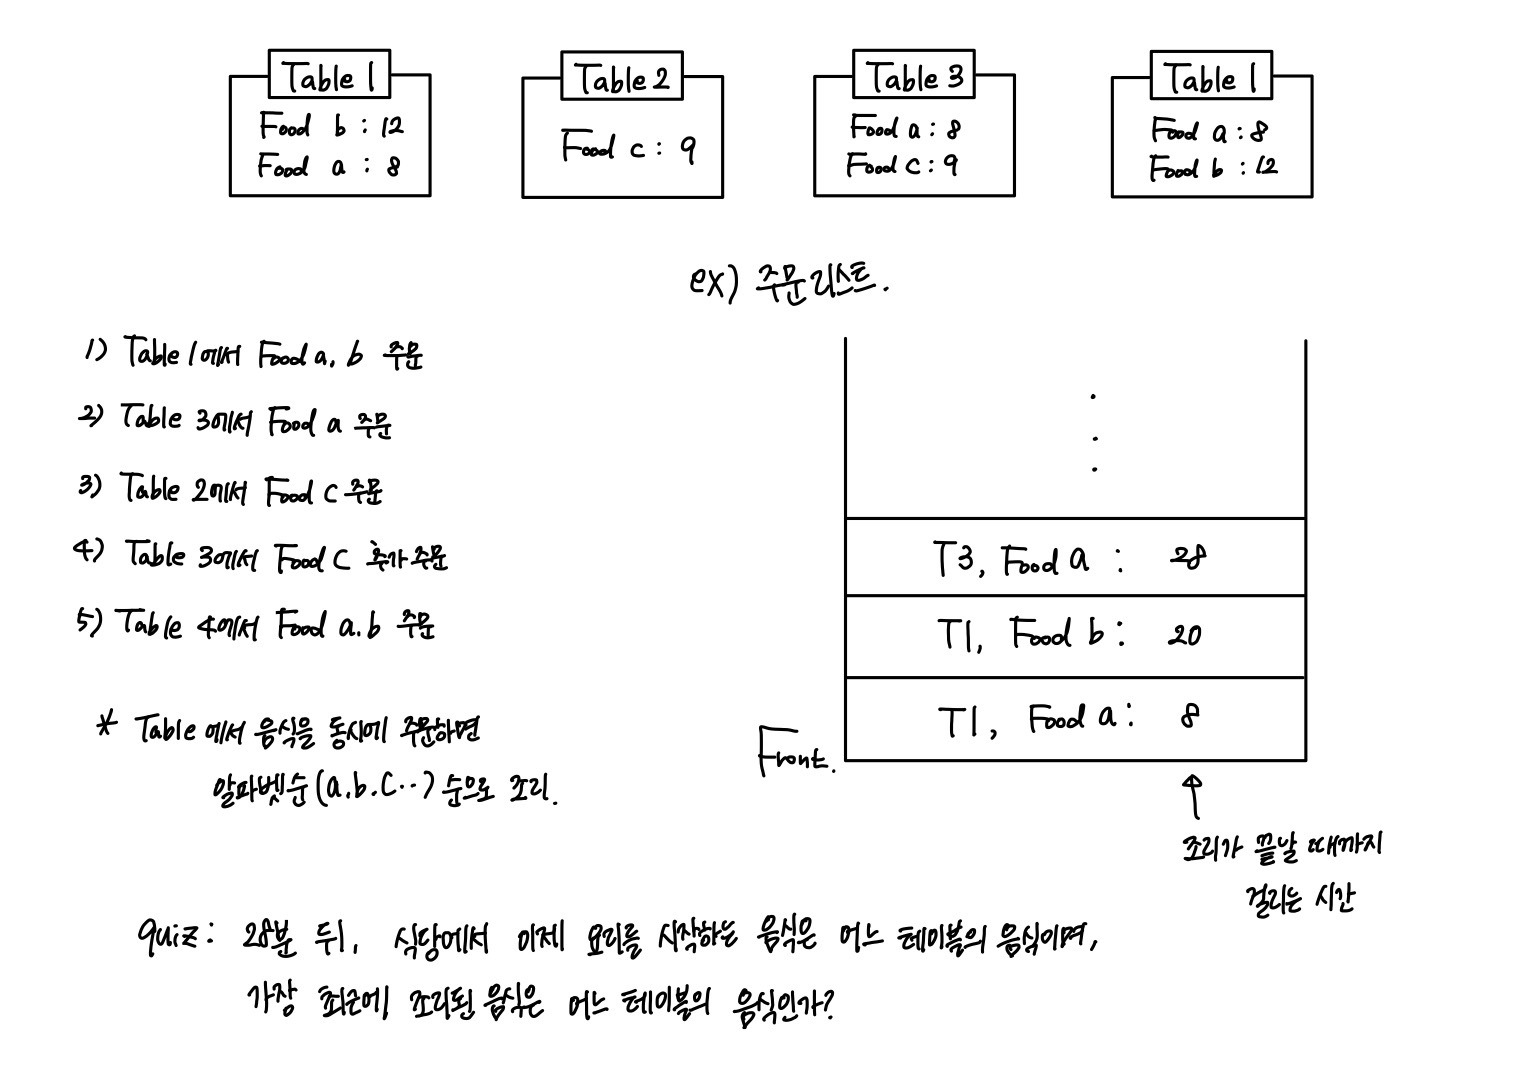 Table 1
Food b : 12
Food a : 8
Table 2
Food c : 9
Table 3
Food a : 8
Food c : 9
Table 1
Food a : 8
Food b : 12
ex) 주문리스트.
1) Table 1에서 Food a, b 주문
2) Table 3에서 Food a 주문
3) Table 2에서 Food c 주문
4) Table 3에서 Food C 추가 주문
5) Table 4에서 Food a.b 주문
* Table 에서 음식을 동시에 주문하면
알파벳순(a.b.c...) 순으로 조리.
T3, Food a : 28
T1, Food b : 20
T1, Food a : 8
Front.
조리가 끝날 때까지
걸리는 시간
quiz : 28분 뒤, 식당에서 이제 요리를 시작하는 음식은 어느 테이블의 음식이며,
가장 최근에 조리된 음식은 어느 테이블의 음식인가?